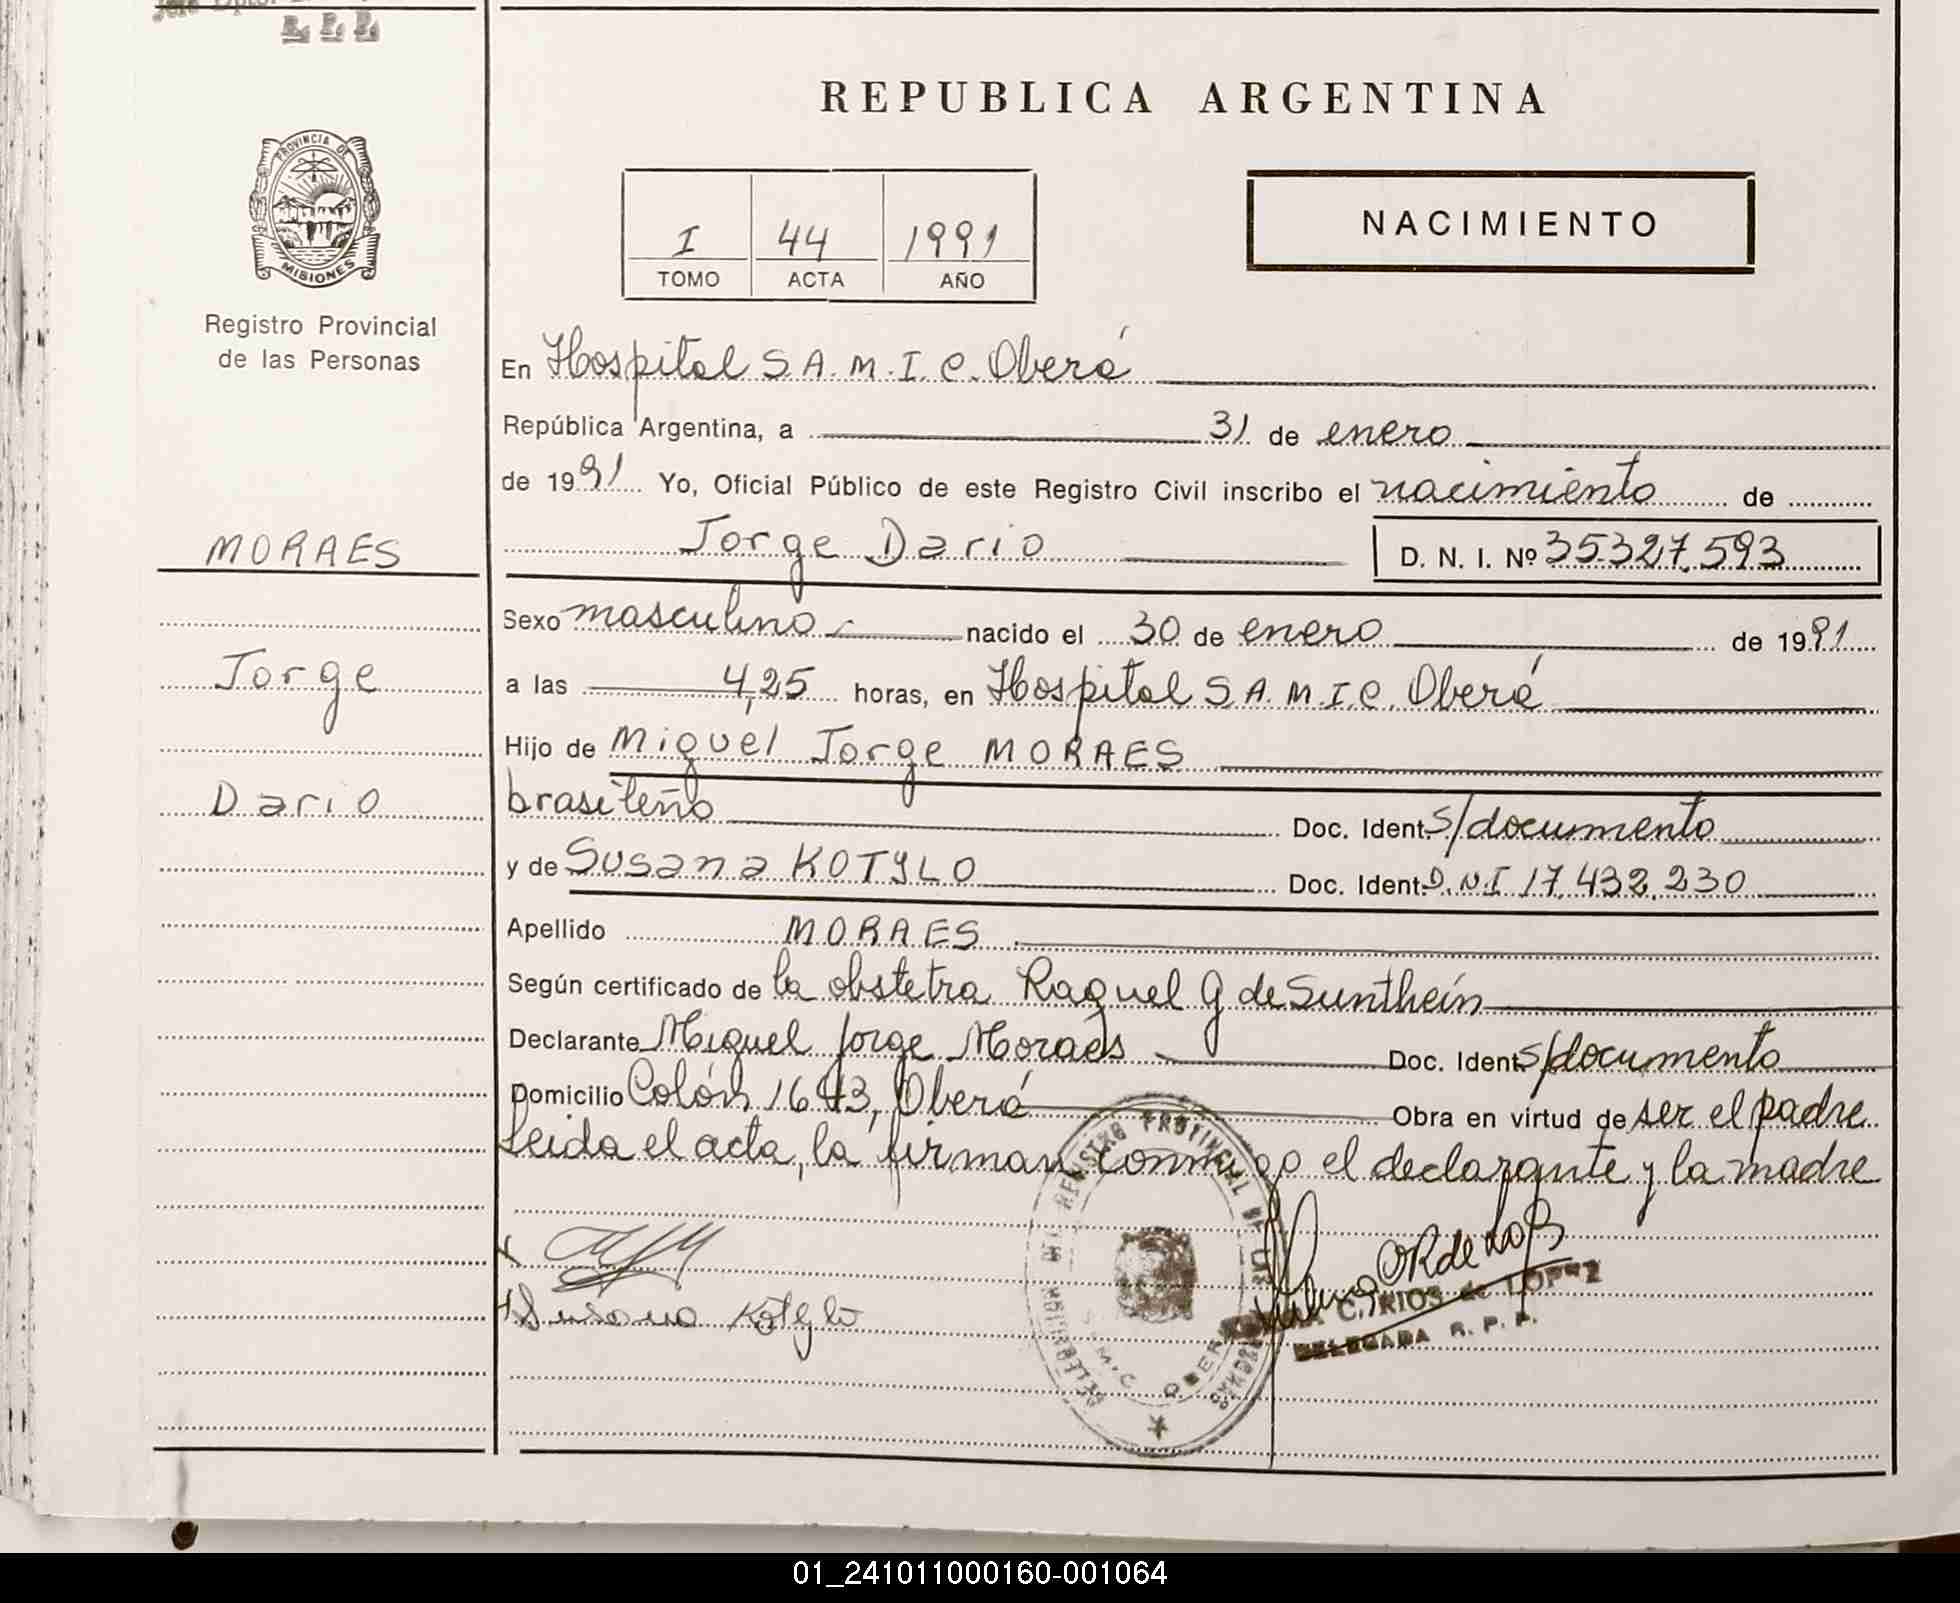 R. P. P.
REPUBLICA ARGENTINA
PROVINCIA DE
MISIONES
Registro Provincial
de las Personas
I 44 1991
TOMO ACTA AÑO
NACIMIENTO
En Hospital S.A.M.I.C. Oberá
República Argentina, a 31 de enero
de 1991 Yo, Oficial Público de este Registro Civil inscribo el nacimiento de
MORAES
Jorge Dario D. N. I. Nº 35.327.593
Sexo masculino nacido el 30 de enero de 1991
Jorge
a las 4,25 horas, en Hospital S.A.M.I.C. Oberá
Hijo de Miguel Jorge MORAES
Dario
brasileño Doc. Ident. s/documento
y de Susana KOTYLO Doc. Ident. D.N.I 17.432.230
Apellido MORAES
Según certificado de la obstetra Raquel G de Sunthein
Declarante Miguel Jorge Moraes Doc. Ident. s/documento
Domicilio Colón 1643, Oberá Obra en virtud de ser el padre
Leida el acta, la firman conmigo el declarante y la madre
Susana Kotylo
REGISTRO PROVINCIAL DE LAS
C. RIOS de LOPEZ
DELEGADA R. P. P.
01_241011000160-001064